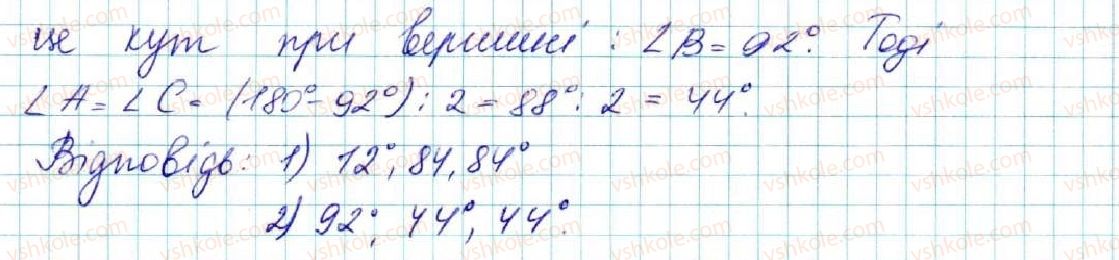 це кут при вершині: ∠B = 92°. Тоді
∠A = ∠C = (180° - 92°) : 2 = 88° : 2 = 44°.
Відповідь: 1) 12°, 84, 84°
2) 92°, 44°, 44°.